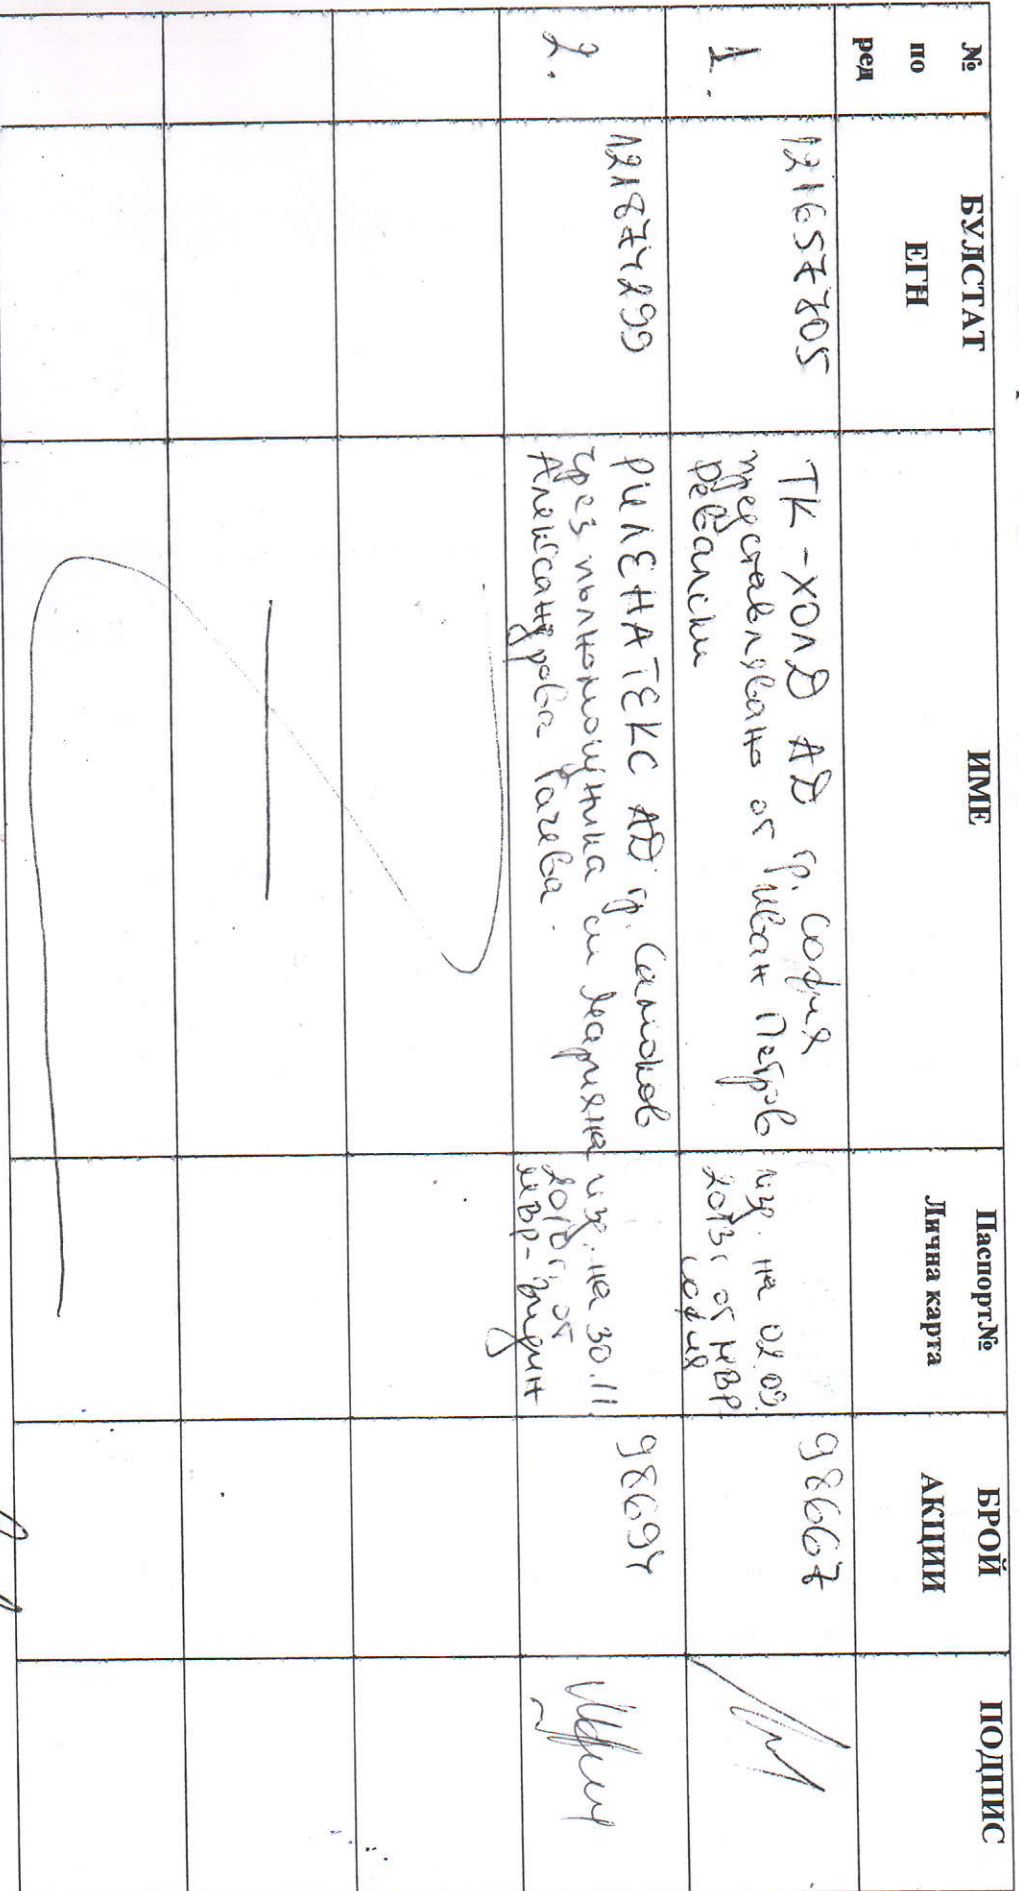 № по ред
БУЛСТАТ ЕГН
ИМЕ
Паспорт№ Лична карта
БРОЙ АКЦИИ
ПОДПИС
1.
121657705
ТК-ХОЛД АД гр. София
представлявано от Иван Петров
Ревалски
изр. на 02.09
2013г от МВР
София
98667
2.
121874299
РИЛЕНАТЕКС АД гр. Самоков
чрез пълномощника си Марияна
Александрова Рачева.
изр. на 30.11
2010г. от
МВР-
98694